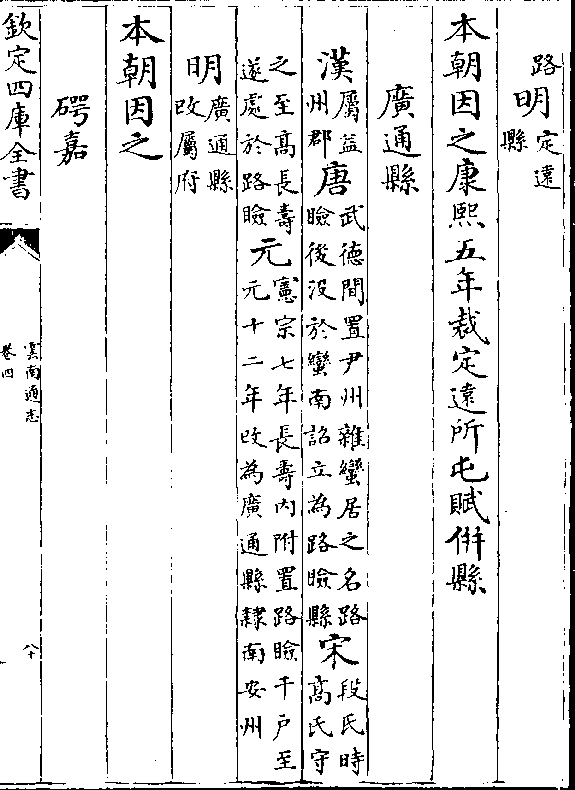 路明定遠縣
本朝因之康熙五年裁定遠所屯賦併縣
廣通縣
漢屬益州郡唐武德間置尹州雜蠻居之名路瞼後没於蠻南詔立為路瞼縣宋段氏時髙氏守
之至髙長壽遂處於路瞼元憲宗七年長壽内附置路瞼千户至元十二年改為廣通縣隸南安州
明廣通縣改屬府
本朝因之
𥔲嘉
欽定四庫全書
雲南通志
卷四
八十